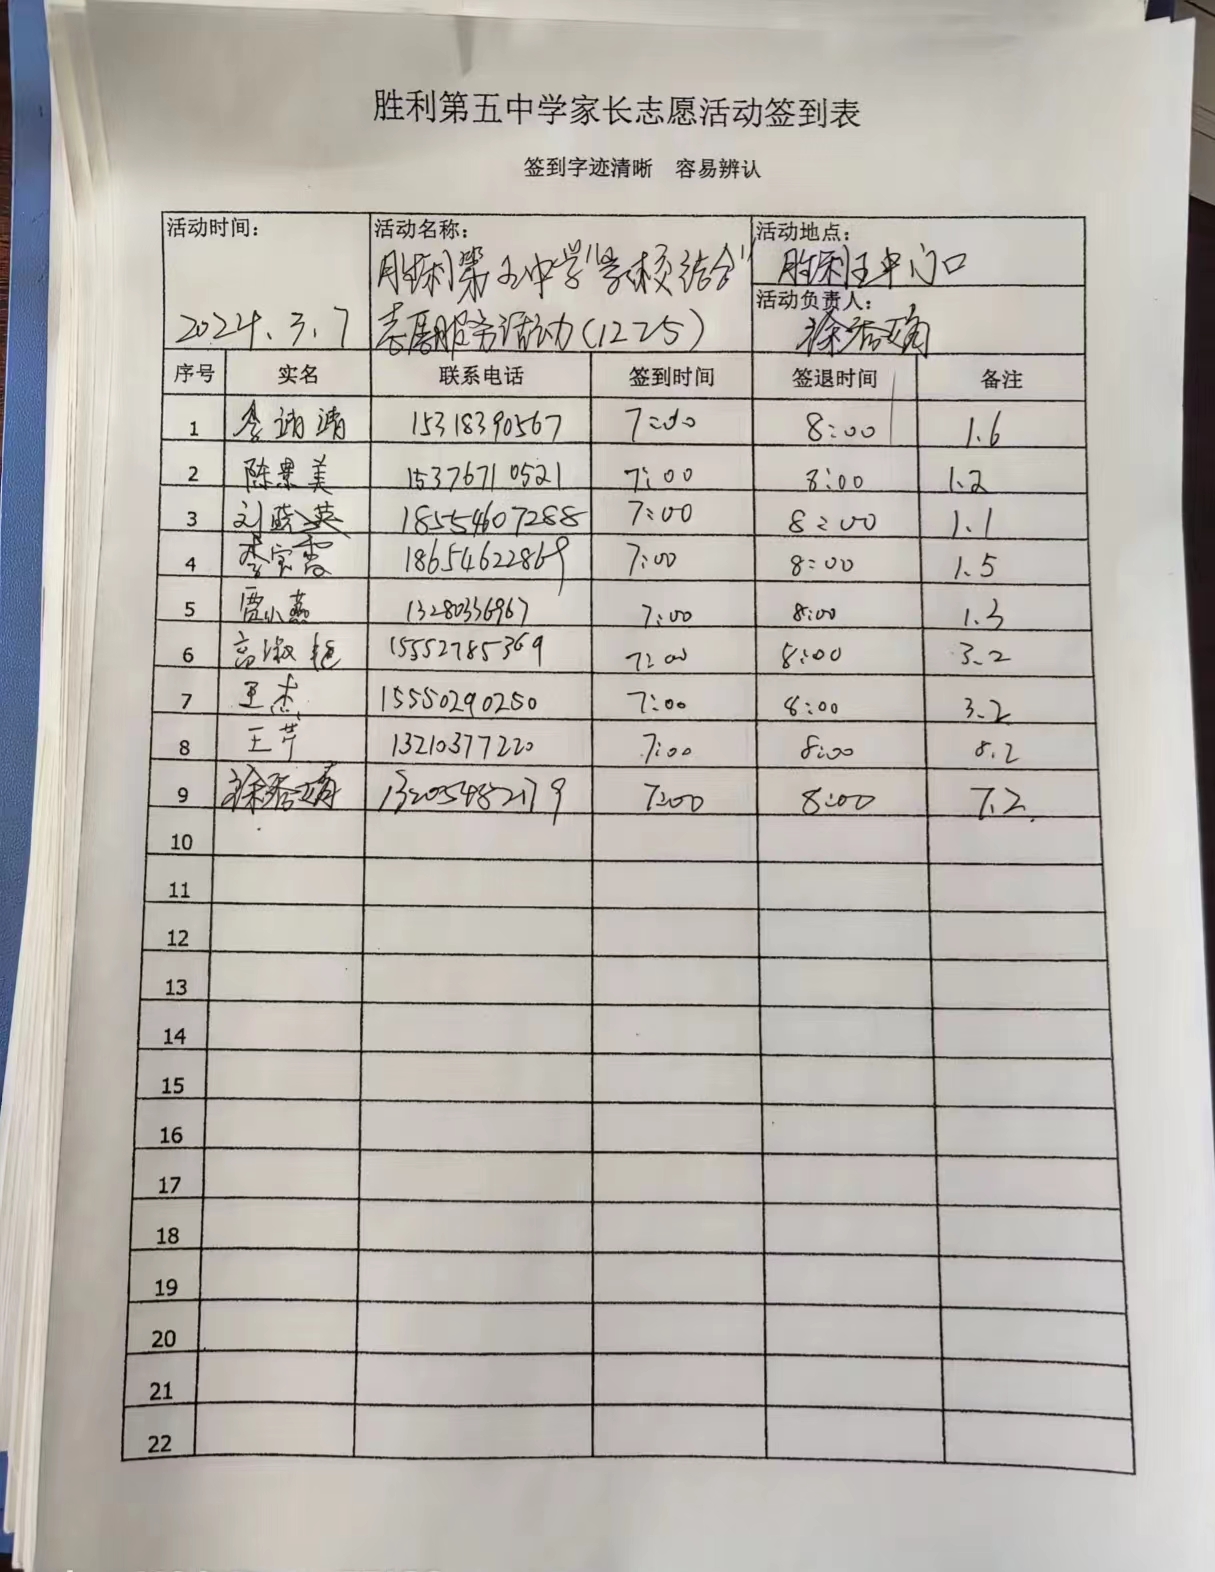 胜利第五中学家长志愿活动签到表
签到字迹清晰 容易辨认
活动时间: 2024.3.7
活动名称: 胜利第五中学"学校结合"
志愿服务活动(1225)
活动地点: 胜利五中门口
活动负责人:
序号 实名 联系电话 签到时间 签退时间 备注
1 李靖靖 15318390567 7:00 8:00 1.6
2 陈景美 15376710521 7:00 8:00 1.2
3 刘晓英 18554607288 7:00 8:00 1.1
4 李宝霞 18654622869 7:00 8:00 1.5
5 贾小燕 13280336967 7:00 8:00 1.3
6 高淑艳 15552785369 7:00 8:00 3.2
7 王杰 15550290250 7:00 8:00 3.2
8 王芹 13210377220 7:00 8:00 8.2
9 13205482179 7:00 8:00 7.2
10
11
12
13
14
15
16
17
18
19
20
21
22